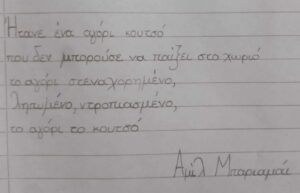 Ήτανε ένα αγόρι κουτσό
που δεν μπορούσε να παίξει στο χωριό
το αγόρι στεναχορημένο,
λυπημένο, ντροπιασμένο,
το αγόρι το κουτσό
Αμίλ Μπαρισμάι